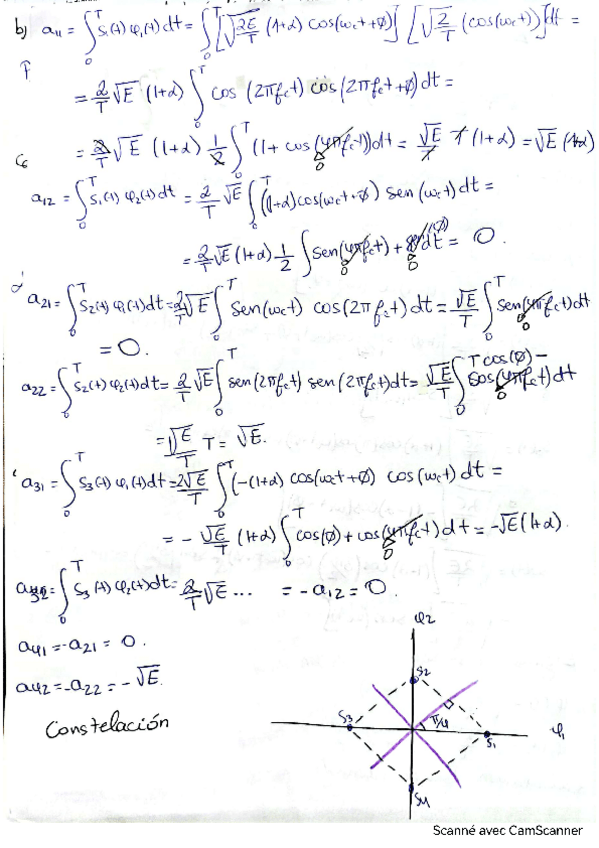 b) a₁₁ = ∫₀ᵀ s₁(t) φ₁(t) dt = ∫₀ᵀ [√(2E/T) (1+α) cos(ωct+ϕ)] [√(2/T) (cos(ωct))] dt =
= 2/T √E (1+α) ∫₀ᵀ cos (2πfct) cos(2πfct+ϕ) dt =
= 2/T √E (1+α) 1/2 ∫₀ᵀ (1 + cos(4πfct)) dt = √E/T T (1+α) = √E (1+α)
a₁₂ = ∫₀ᵀ s₁(t) φ₂(t) dt = 2/T √E ∫₀ᵀ (1+α) cos(ωct+ϕ) sen(ωct) dt =
= 2/T √E (1+α) 1/2 ∫ sen(4πfct) + dt = 0.
a₂₁ = ∫₀ᵀ s₂(t) φ₁(t) dt = 2/T √E ∫₀ᵀ sen(ωct) cos(2πfct) dt = √E/T ∫₀ᵀ sen(4πfct) dt
= 0.
a₂₂ = ∫₀ᵀ s₂(t) φ₂(t) dt = 2/T √E ∫₀ᵀ sen(2πfct) sen(2πfct) dt = √E/T ∫₀ᵀ cos(ϕ) - cos(4πfct) dt
= √E/T T = √E.
a₃₁ = ∫₀ᵀ s₃(t) φ₁(t) dt = 2√E/T ∫₀ᵀ (-(1+α) cos(ωct+ϕ) cos(ωct) dt =
= - √E/T (1+α) ∫₀ᵀ cos(ϕ) + cos(4πfct) dt = -√E (1+α).
a₃₂ = ∫₀ᵀ s₃(t) φ₂(t) dt = 2/T √E ... = -a₁₂ = 0.
a₄₁ = -a₂₁ = 0.
a₄₂ = -a₂₂ = -√E.
Constelación
φ₂
s₂
s₃
π/4
s₁
φ₁
s₄
Scanné avec CamScanner